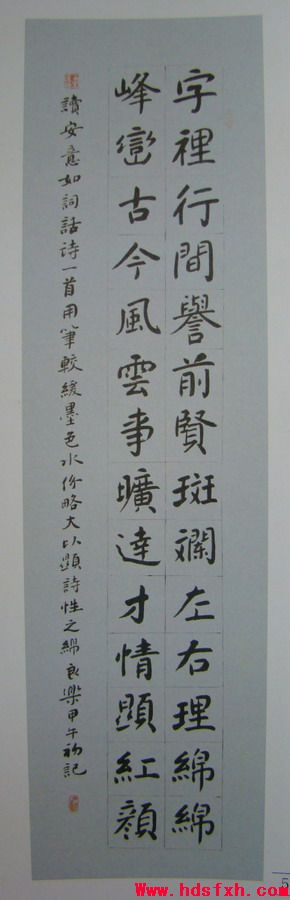 字裡行間譽前賢斑斕左右理綿綿
峰巒古今風雲事曠達才情顯紅顏
讀安意如詞話诗一首用筆較緩墨色水份略大以顯詩性之綿良樂甲午初記
5
www.hdsfxh.com